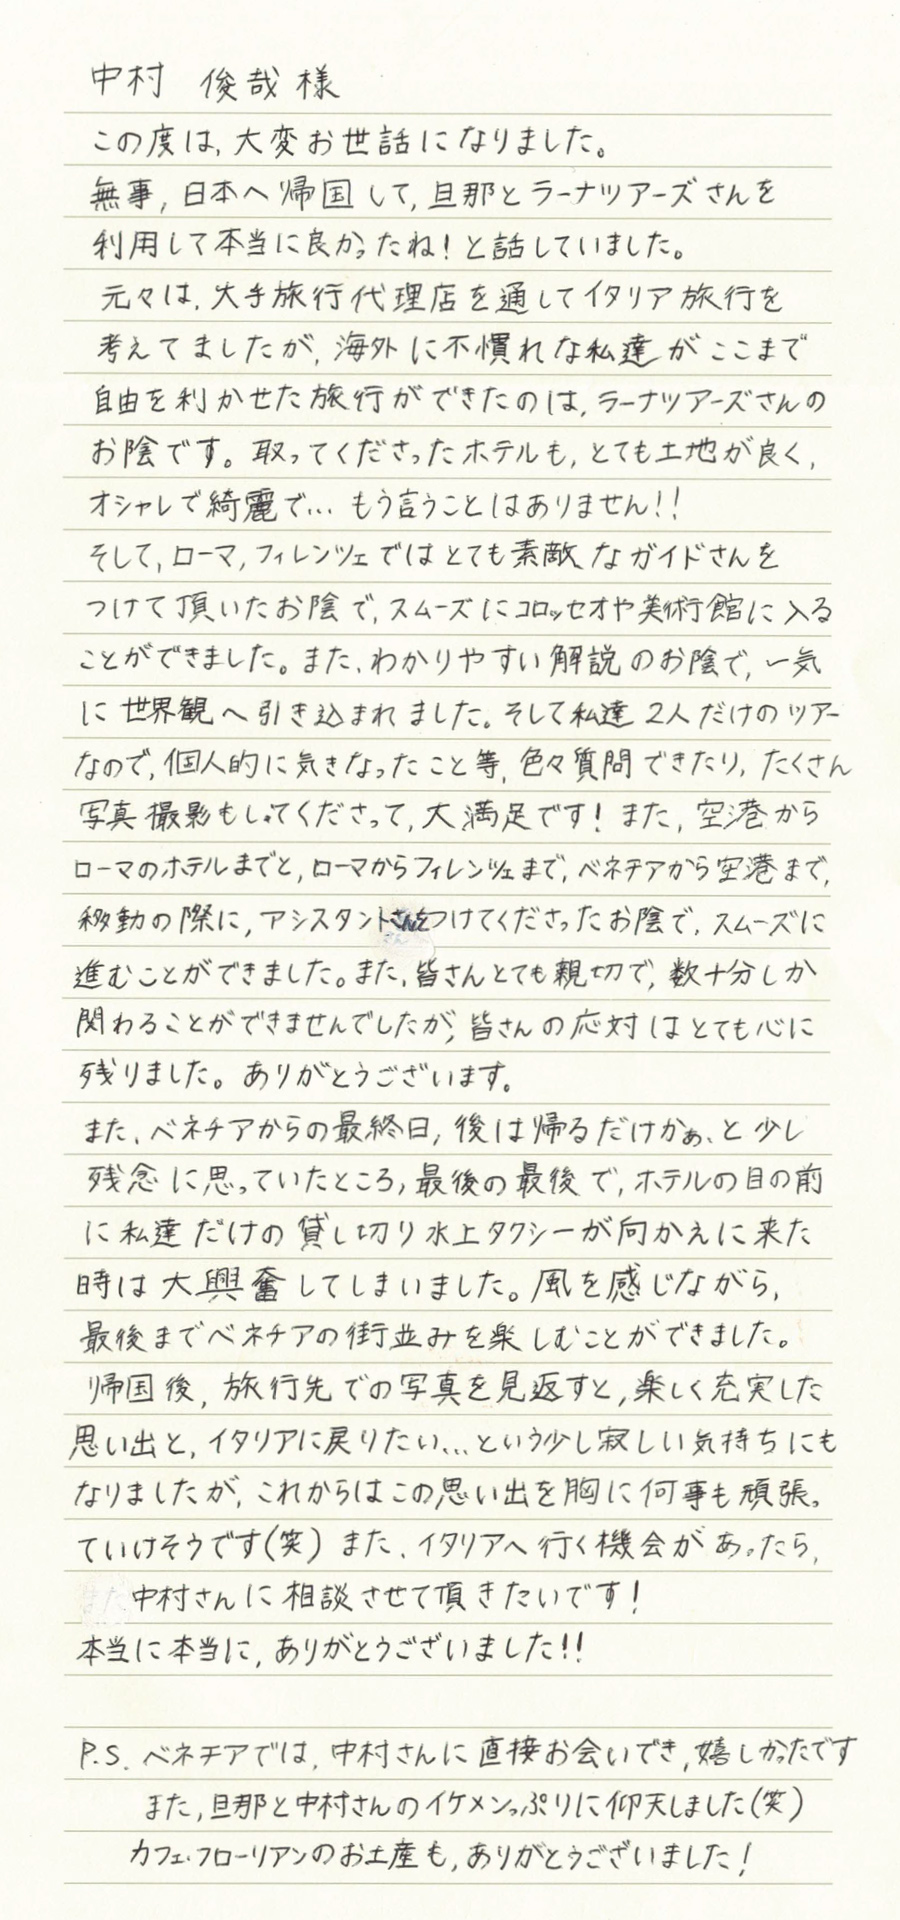 中村 俊哉様
この度は、大変お世話になりました。
無事、日本へ帰国して、旦那とラーナツアーズさんを
利用して本当に良かったね!と話していました。
元々は、大手旅行代理店を通してイタリア旅行を
考えてましたが、海外に不慣れな私達がここまで
自由を利かせた旅行ができたのは、ラーナツアーズさんの
お陰です。取ってくださったホテルも、とても土地が良く、
オシャレで綺麗で… もう言うことはありません!!
そして、ローマ、フィレンツェではとても素敵なガイドさんを
つけて頂いたお陰で、スムーズにコロッセオや美術館に入る
ことができました。また、わかりやすい解説のお陰で、一気
に世界観へ引き込まれました。そして私達2人だけのツアー
なので、個人的に気きなったこと等、色々質問できたり、たくさん
写真撮影もしてくださって、大満足です! また、空港から
ローマのホテルまでと、ローマからフィレンツェまで、ベネチアから空港まで、
移動の際に、アシスタントさんをつけてくださったお陰で、スムーズに
進むことができました。また、皆さんとても親切で、数十分しか
関わることができませんでしたが、皆さんの応対はとても心に
残りました。ありがとうございます。
また、ベネチアからの最終日、後は帰るだけかぁ、と少し
残念に思っていたところ、最後の最後で、ホテルの目の前
に私達だけの貸し切り水上タクシーが向かえに来た
時は大興奮してしまいました。風を感じながら、
最後までベネチアの街並みを楽しむことができました。
帰国後、旅行先での写真を見返すと、楽しく充実した
思い出と、イタリアに戻りたい…という少し寂しい気持ちにも
なりましたが、これからはこの思い出を胸に何事も頑張っ
ていけそうです(笑) また、イタリアへ行く機会があったら、
中村さんに相談させて頂きたいです!
本当に本当に、ありがとうございました!!
P.S. ベネチアでは、中村さんに直接お会いでき、嬉しかったです
また、旦那と中村さんのイケメンっぷりに仰天しました(笑)
カフェ・フローリアンのお土産も、ありがとうございました!